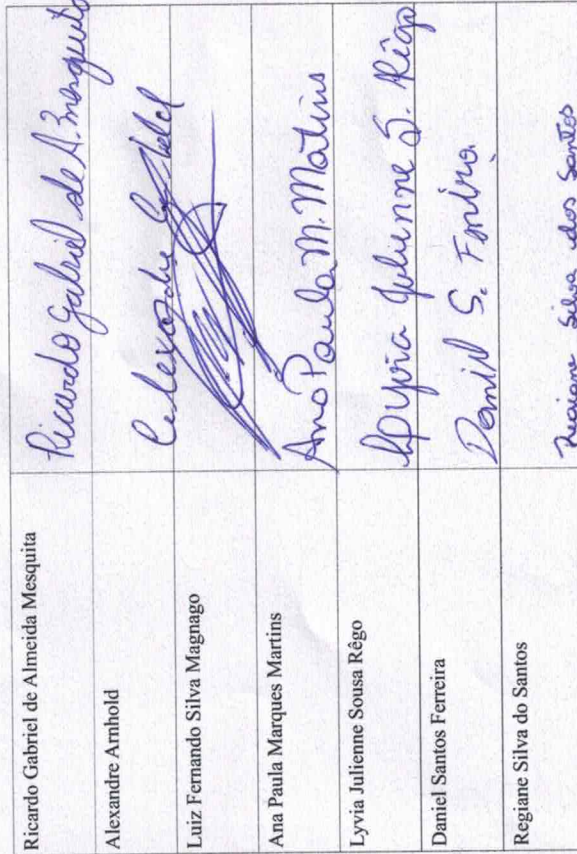 Ricardo Gabriel de Almeida Mesquita
Ricardo Gabriel de A. Mesquita
Alexandre Arnhold
Luiz Fernando Silva Magnago
Ana Paula Marques Martins
Ana Paula M. Martins
Lyvia Julienne Sousa Rêgo
Lyvia Julienne S. Rêgo
Daniel Santos Ferreira
Daniel S.
Regiane Silva do Santos
Regiane Silva dos Santos